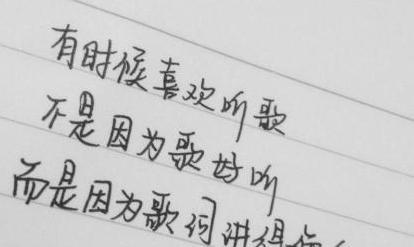 有时候喜欢听歌
不是因为歌好听
而是因为歌词讲得